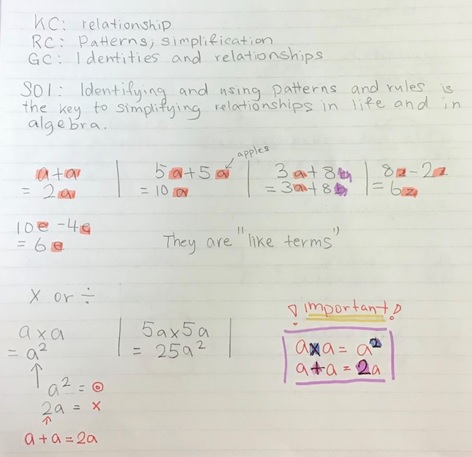 KC: relationship
RC: Patterns, simplification
GC: Identities and relationships
SOI: Identifying and using patterns and rules is
the key to simplifying relationships in life and in
algebra.
apples
a+a | 5a+5a | 3a+8b | 8z-2z
=2a | =10a | =3a+8b | =6z
10e-4e
=6e
They are "like terms"
x or ÷
! important !
axa | 5ax5a |
=a² | =25a² |
axa=a²
a+a=2a
a² = ⊙
2a = x
a+a=2a